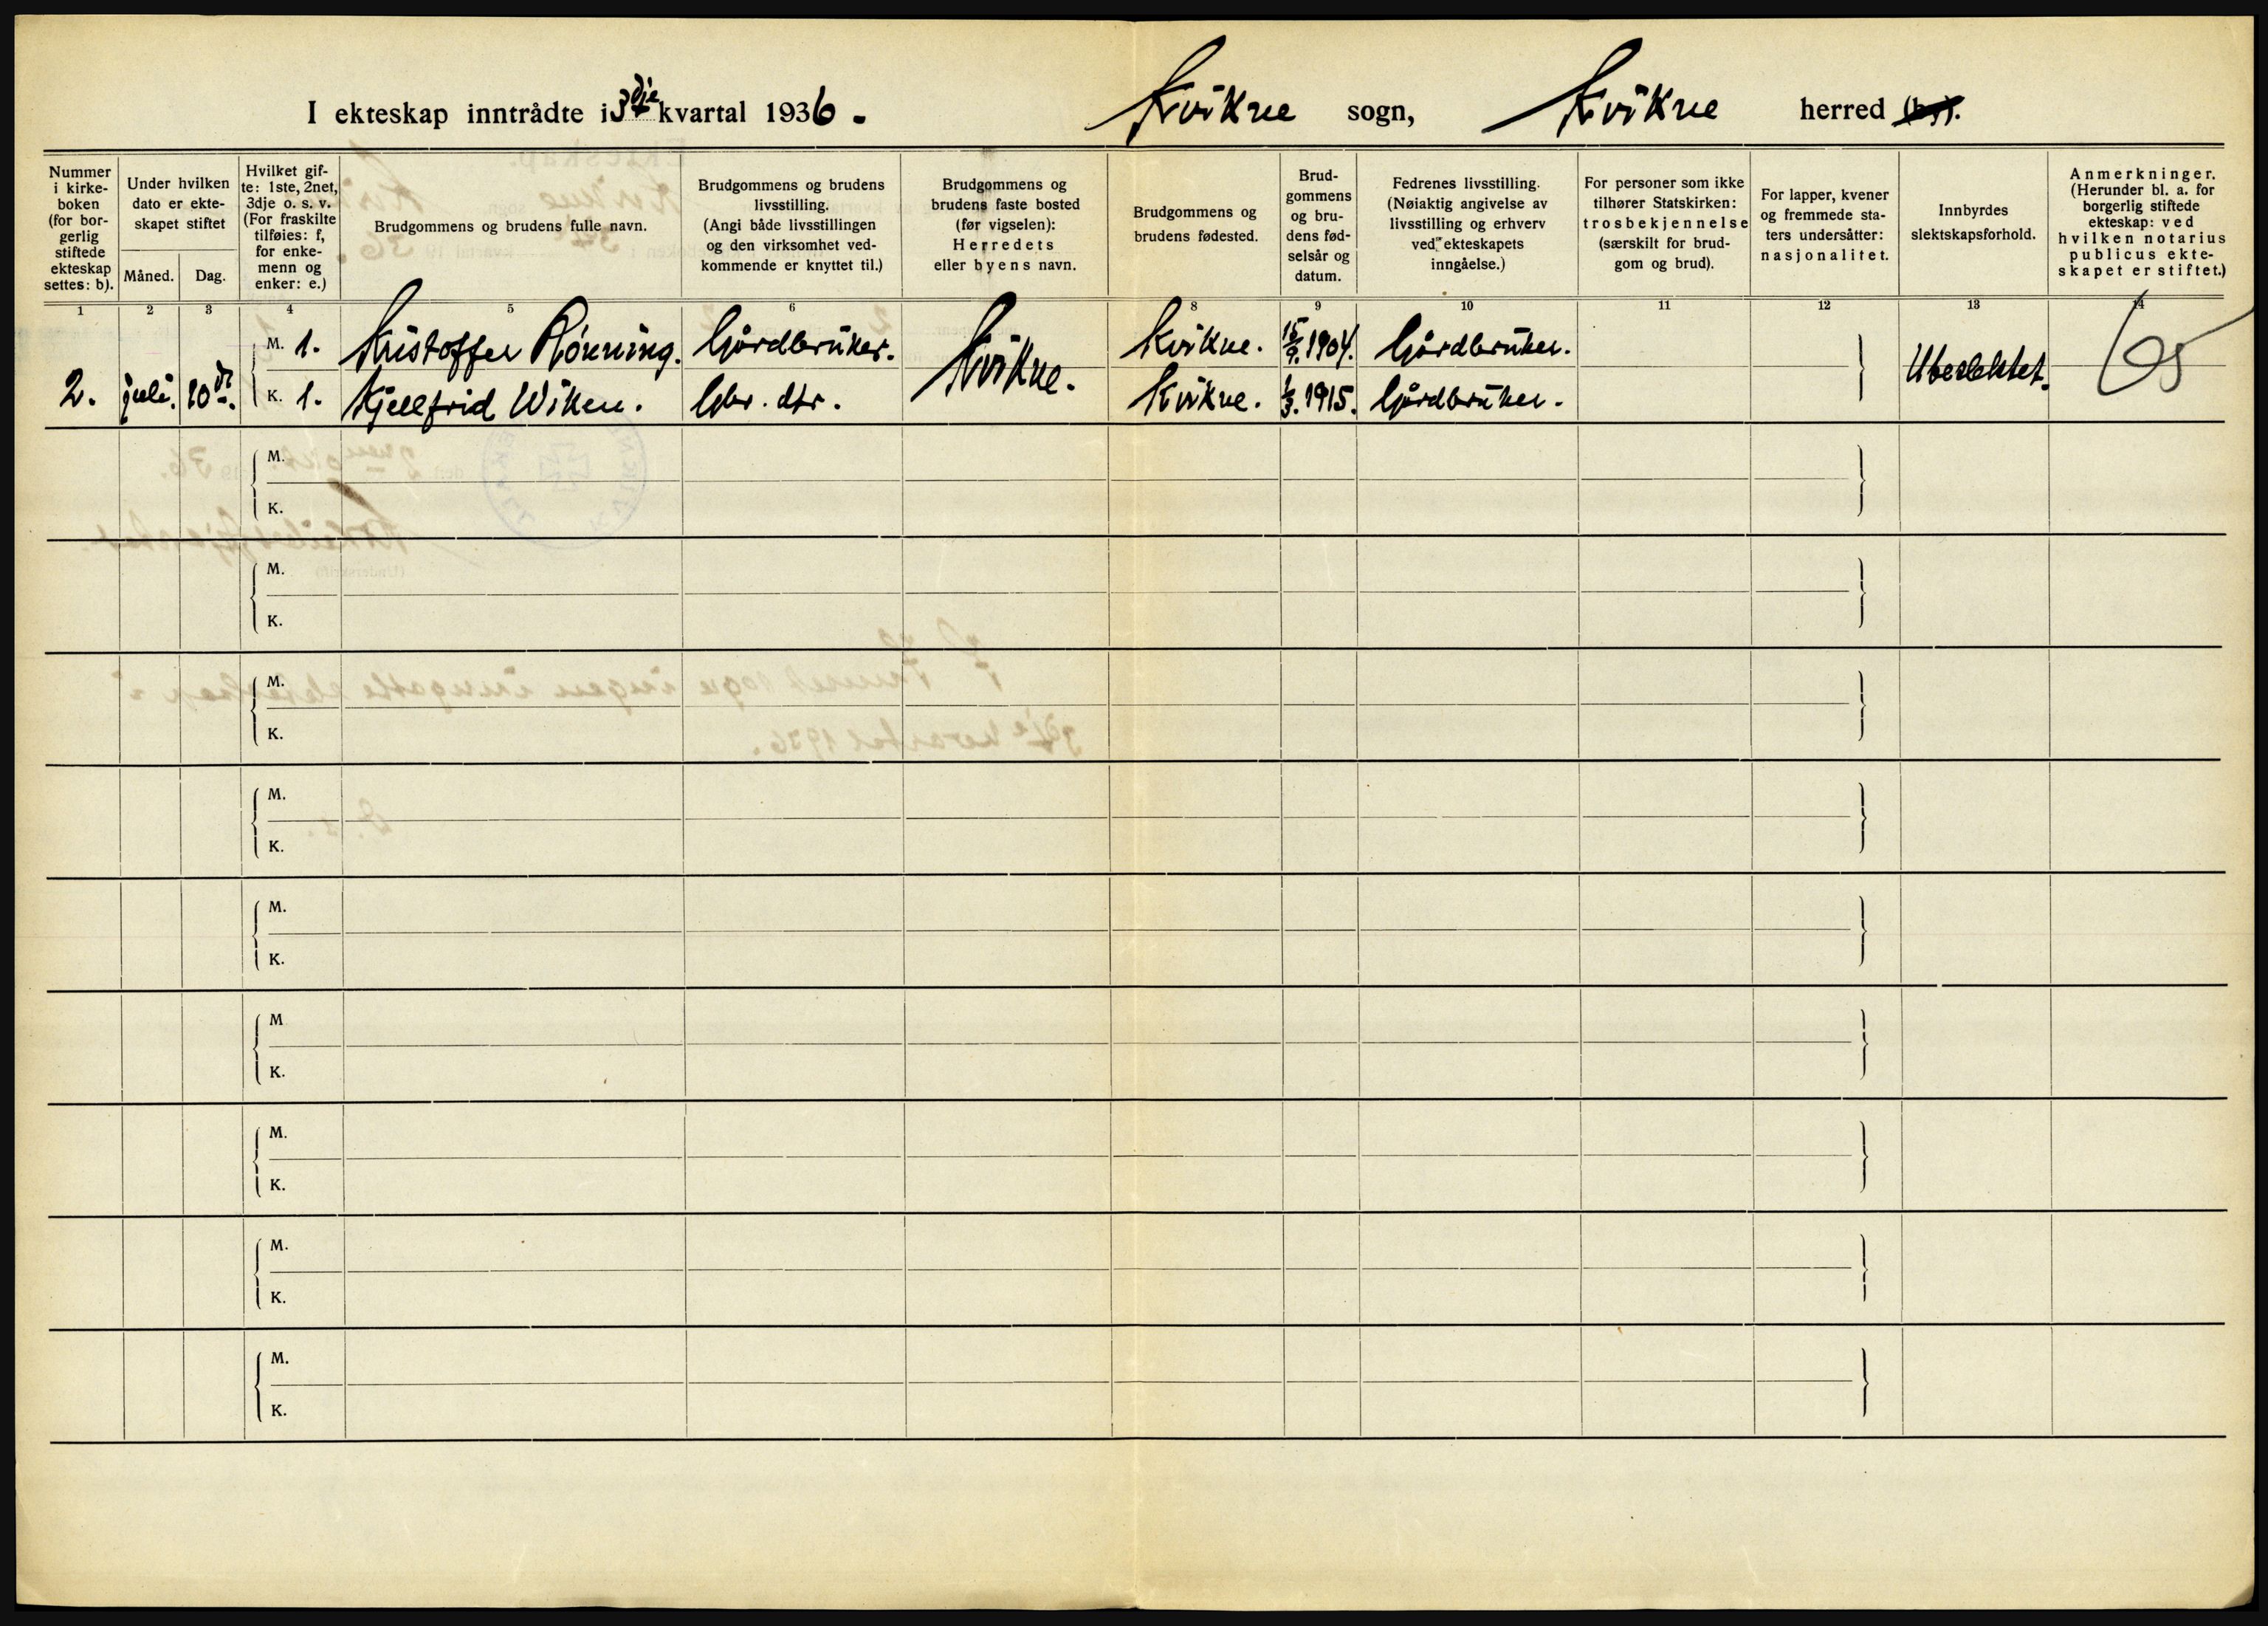 I ekteskap inntrådte i 3dje kvartal 1936. Kvikne sogn, Kvikne herred
Nummer i kirkeboken (for borgerlig stiftede ekteskap settes: b).
Under hvilken dato er ekteskapet stiftet
Måned. Dag.
Hvilket gifte: 1ste, 2net, 3dje o. s. v. (For fraskilte tilføies: f, for enkemenn og enker: e.)
Brudgommens og brudens fulle navn.
Brudgommens og brudens livsstilling. (Angi både livsstillingen og den virksomhet vedkommende er knyttet til.)
Brudgommens og brudens faste bosted (før vigselen): Herredets eller byens navn.
Brudgommens og brudens fødested.
Brudgommens og brudens fødselsår og datum.
Fedrenes livsstilling. (Nøiaktig angivelse av livsstilling og erhverv ved ekteskapets inngåelse.)
For personer som ikke tilhører Statskirken: trosbekjennelse (særskilt for brudgom og brud).
For lapper, kvener og fremmede staters undersåtter: nasjonalitet.
Innbyrdes slektskapsforhold.
Anmerkninger. (Herunder bl. a. for borgerlig stiftede ekteskap: ved hvilken notarius publicus ekteskapet er stiftet.)
1 2 3 4 5 6 8 9 10 11 12 13 14
M. 1. Kristoffer Rönning. Gårdbruker. Kvikne. Kvikne. 15/9. 1904. Gårdbruker. Ubeslektet.
2. juli. K. 1. Kjellfrid Wiken. Gbr. dtr. Kvikne. 1/3. 1915. Gårdbruker.
M.
K.
M.
K.
M.
K.
M.
K.
M.
K.
M
K.
M.
K.
M.
K.
M.
K.